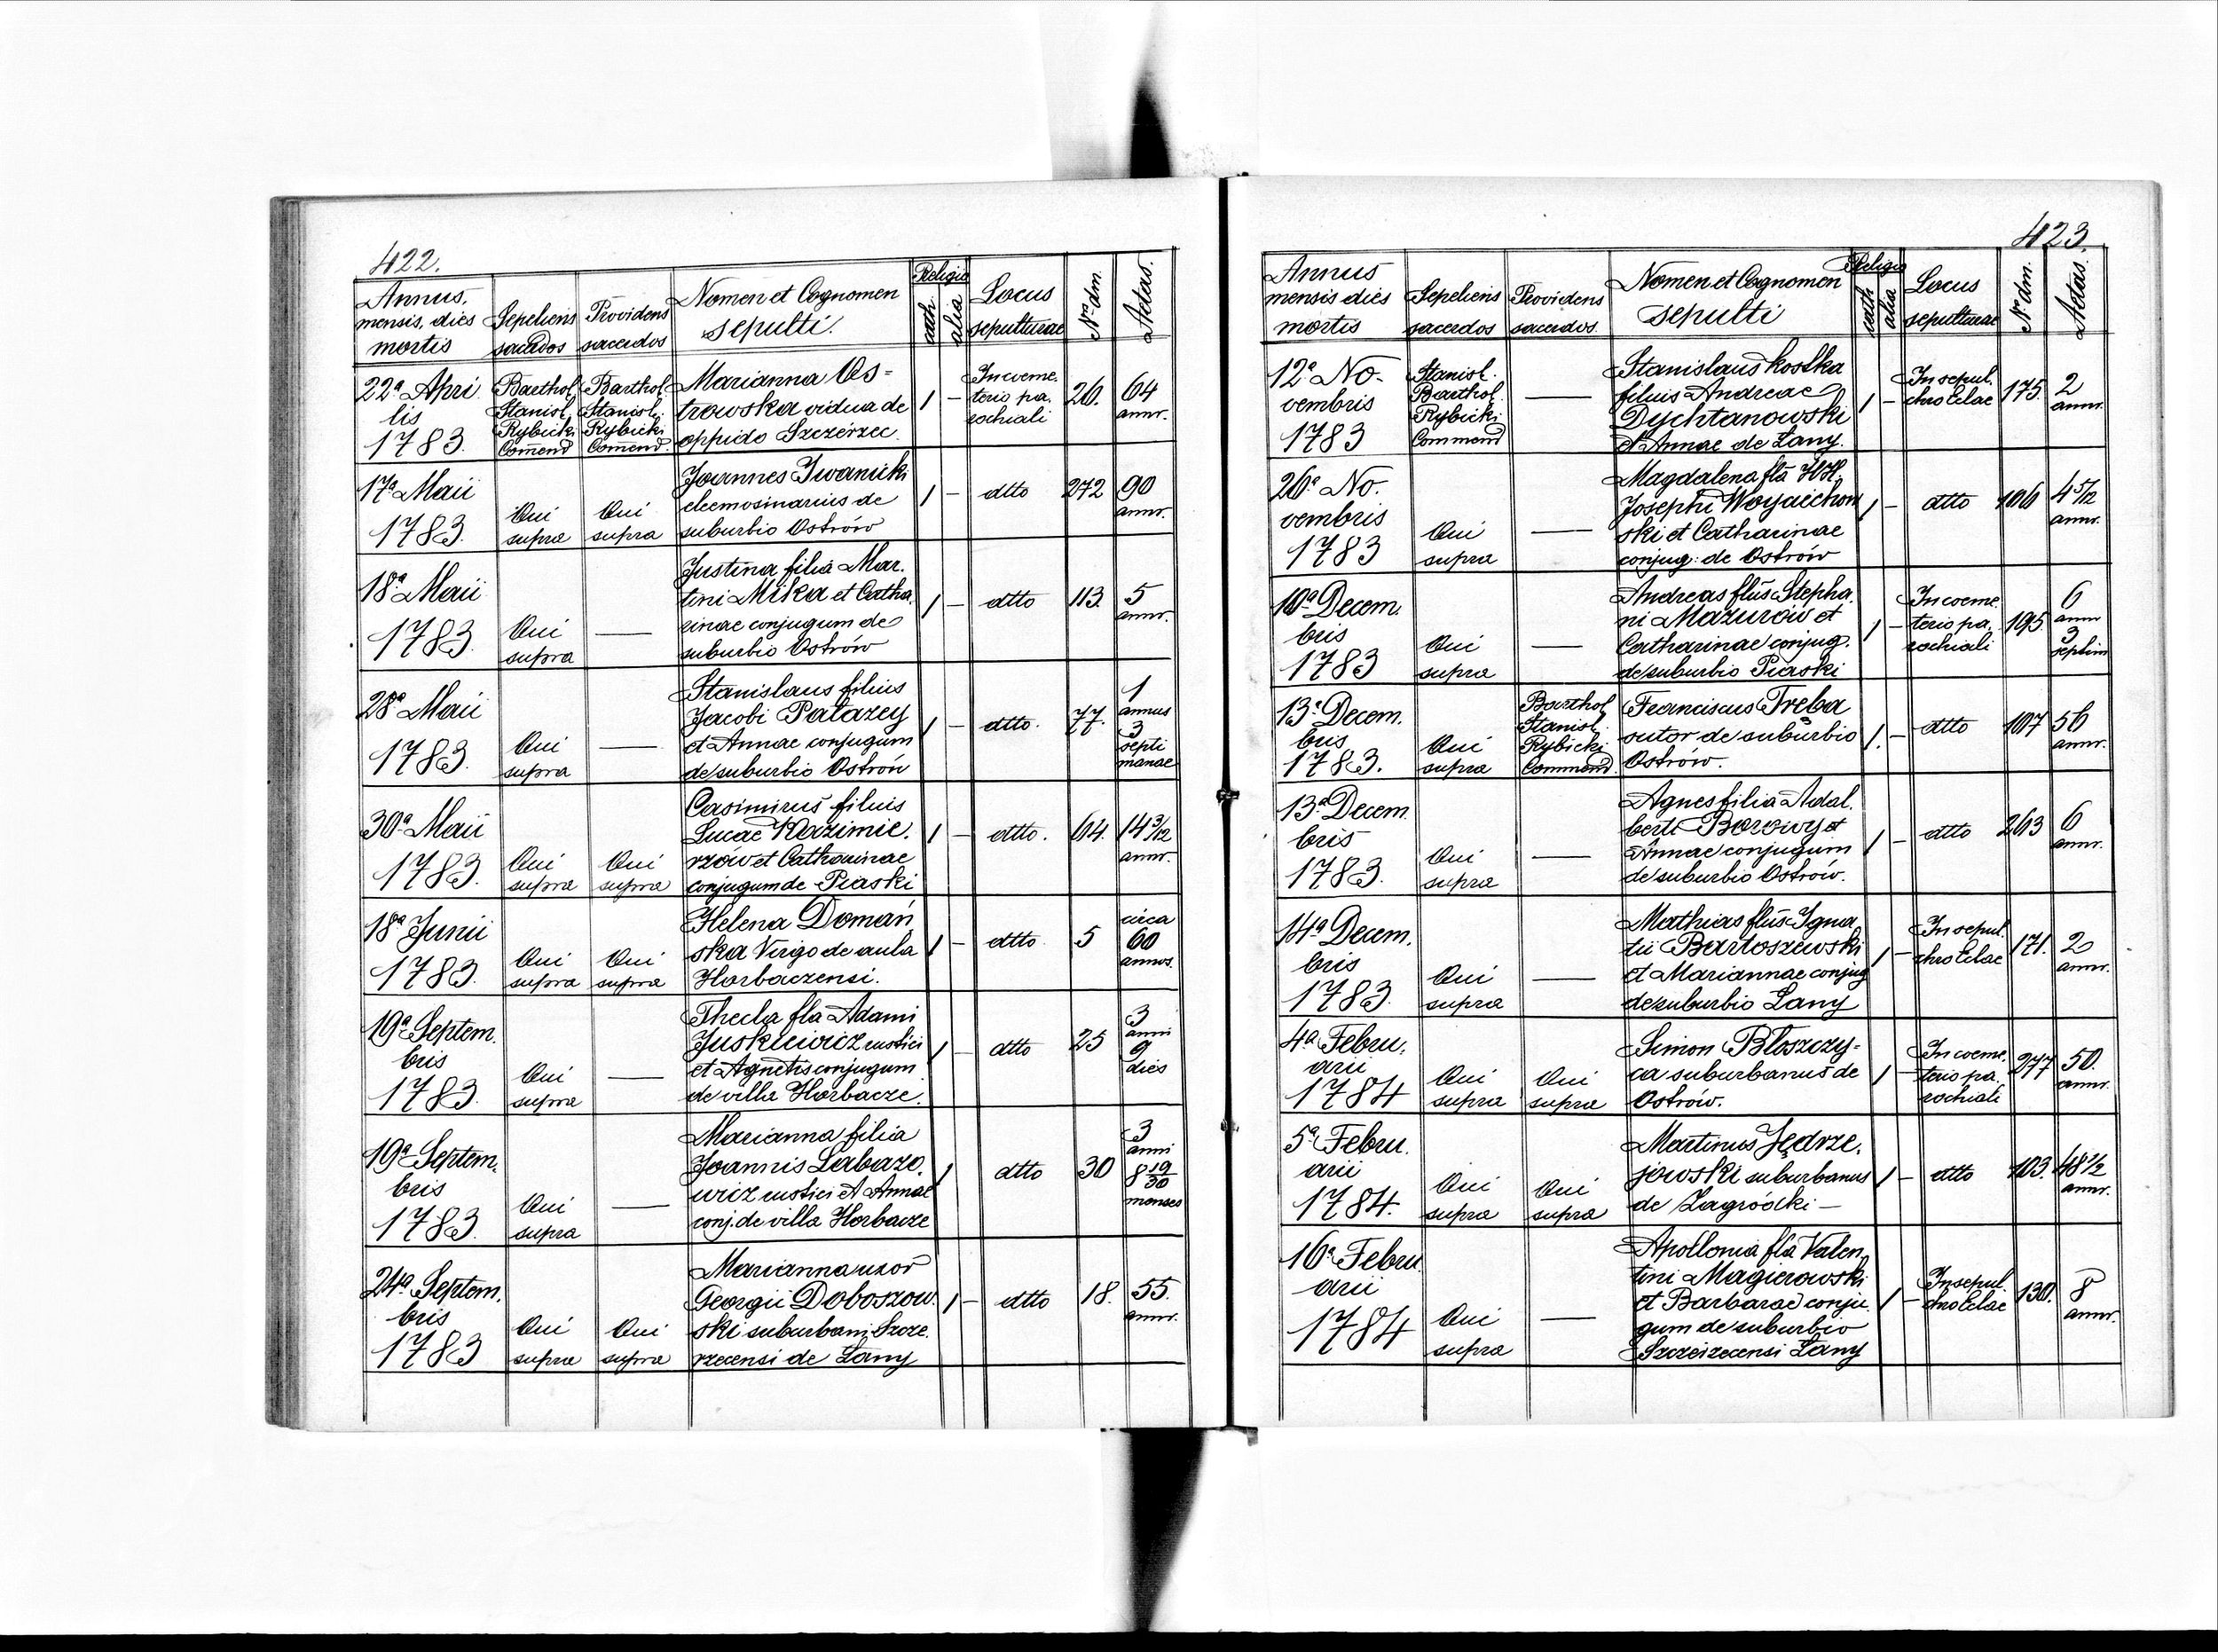 422.
Annus, mensis, dies mortis
Sepeliens sacerdos
Providens sacerdos
Nomen et Cognomen sepulti.
Religio
cath.
alia
Locus sepulturae
Nr. dm.
Aetas.
22a Apri
lis
1783.
Barthol.
Stanisl.
Rybicki
Com̄end
Barthol.
Stanisl.
Rybicki
Com̄end.
Marianna Os=
trowska vidua de
oppido Szczérzec.
1
–
In coeme.
terio pa.
rochiali
26.
64
annr.
17a Maii
1783.
Qui
supra
Qui
supra
Joannes Iwanicki
eleemosinarius de
suburbio Ostrów
1
–
dtto
272
90
annr.
18a Maii
1783.
Qui
supra
—
Justina filia Mar.
tini Mika et Catha.
rinae conjugum de
suburbio Ostrów
1
–
dtto
113.
5
annr.
28a Maii
1783.
Qui
supra
—
Stanislaus filius
Jacobi Patazey
et Annae conjugum
de suburbio Ostrów
1
–
dtto.
77.
1
annus
3
septi
manae
30a Maii
1783.
Qui
supra
Qui
supra
Casimirus filius
Lucae Kazimie.
rzów et Catharinae
conjugum de Piaski
1
–
dtto.
64.
14 3/12
annr.
18a Junii
1783.
Qui
supra
Qui
supra
Helena Domań
ska Virgo de aula
Horbaczensi.
1
–
dtto
5
circa
60
annos.
19a Septem.
bris
1783.
Qui
supra
—
Thecla fla Adami
Juskiewicz rustici
et Agnetis conjugum
de villa Horbacze.
1
–
dtto
25
3
anni
9
dies
19a Septem.
bris
1783.
Qui
supra
—
Marianna filia
Joannis Labazo.
wicz rustici et Annae
conj. de villa Horbacze
1
dtto
30
3
anni
8 19/30
menses
24a Septem.
bris
1783
Qui
supra
Qui
supra
Marianna uxor
Georgii Doboszow.
ski suburbani Szcze.
rzecensi de Lany
1
–
dtto
18.
55.
annr.
423.
Annus mensis dies mortis
Sepeliens sacerdos
Providens sacerdos.
Nomen et Cognomen sepulti
Religio
cath
alia
Locus sepulturae
Nr dm.
Aetas.
12a No.
vembris
1783
Stanisl.
Barthol.
Rybicki
Commend
—
Stanislaus Kostka
filius Andreae
Dychtanowski
et Annae de Lany.
1
–
In sepul.
chro Eclae
175.
2
annr.
26a No.
vembris
1783
Qui
supra
—
Magdalena fla HH.
Josephi
ski et Catharinae
conjug: de Ostrów
1
–
dtto
106
4 5/12
annr.
10a Decem.
bris
1783
Qui
supra
—
Andreas flūs Stepha.
ni Mazurów et
Catharinae conjug.
de suburbio Piaski
1
–
In coeme.
terio pa.
rochiali
195.
6
annr
3
septim
13a Decem.
bris
1783.
Qui
supra
Barthol.
Stanisl.
Rybicki
Commend.
Franciscus Treba
sutor de suburbio
Ostrów.
1.
–
dtto
107
56
annr.
13a Decem
bris
1783.
Qui
supra
—
Agnes filia Adal.
berti Borowy et
Annae conjugum
de suburbio Ostrów.
1
–
dtto
263
6
annr.
14a Decem.
bris
1783.
Qui
supra
—
Mathias flūs Igna
tii Bartoszewski
et Mariannae conjug
de suburbio Lany
1
–
In sepul.
chro Eclae
171.
2
annr.
4a Febru.
arii
1784
Qui
supra
Qui
supra
Simon Błoszczy=
ca suburbanus de
Ostrów.
1
–
In coeme.
terio pa.
rochiali
277
50.
annr.
5a Febru.
arii
1784.
Qui
supra
Qui
supra
Martinus Jędrze.
jowski suburbanus
de Zagródki —
1
–
dtto
103.
48 1/2
annr.
16a Febru.
arii
1784
Qui
supra
—
Apollonia fla Valen.
tini Magierowski
et Barbarae conju.
gum de suburbio
Szczerzecensi Lany
1
–
In sepul.
chro Eclae
130.
8
annr.